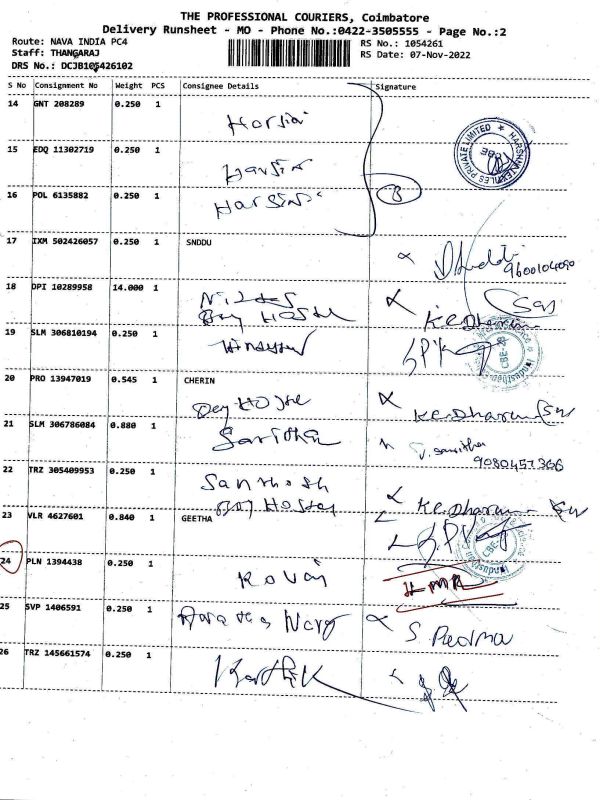 THE PROFESSIONAL COURIERS, Coimbatore
Delivery Runsheet - MO - Phone No.:0422-3505555 - Page No.:2
Route: NAVA INDIA PC4 RS No.: 1054261
Staff: THANGARAJ RS Date: 07-Nov-2022
DRS No.: DCJB105426102
S No Consignment No Weight PCS Consignee Details Signature
14 GNT 208289 0.250 1
15 EDQ 11302719 0.250 1
16 POL 6135882 0.250 1
17 IXM 502426057 0.250 1 SNDDU
9600104090
18 DPI 10289958 14.000 1
Boy Hostel K.C.Dharun
19 SLM 306810194 0.250 1
20 PRO 13947019 0.545 1 CHERIN
K.C.Dharun
21 SLM 306786084 0.880 1
Saritha
9080457366
22 TRZ 305409953 0.250 1
Santhosh
Boy Hostel K.C.Dharun
23 VLR 4627601 0.840 1 GEETHA
24 PLN 1394438 0.250 1
Kovai
25 SVP 1406591 0.250 1
S. Padma
26 TRZ 145661574 0.250 1
Karthik